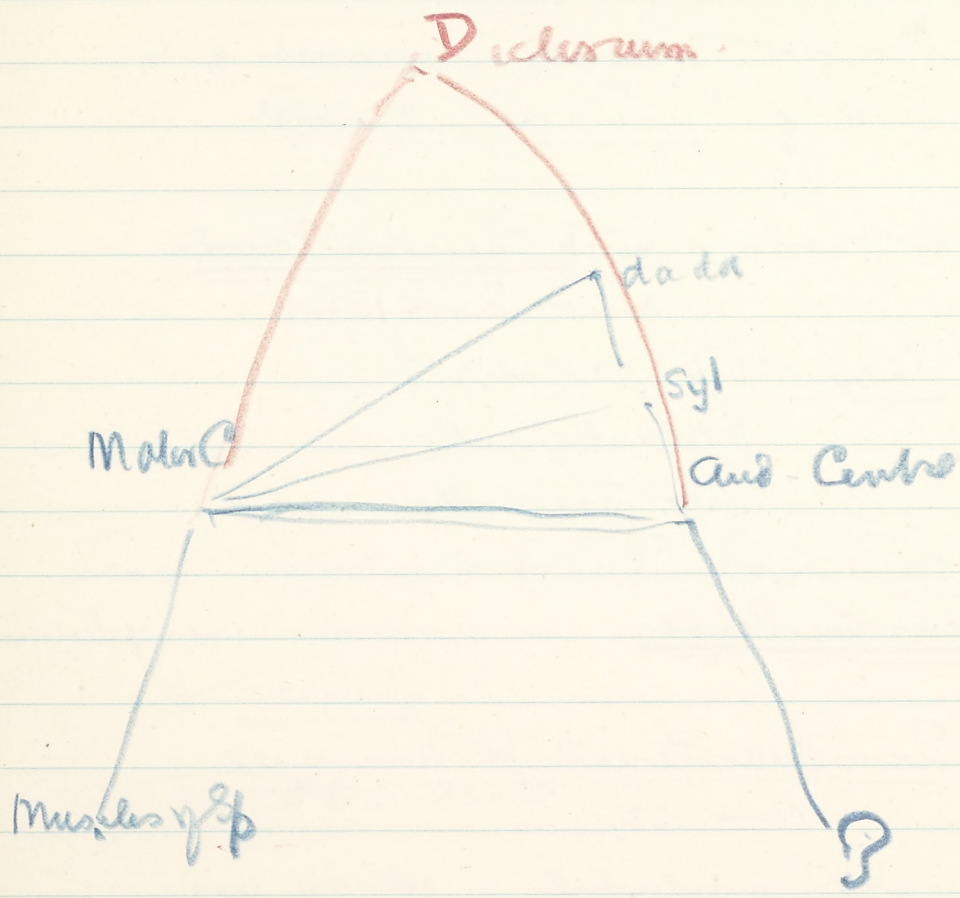 D
da da
Syl
Motor C
Aud - Centre
Muscles of Sp
?